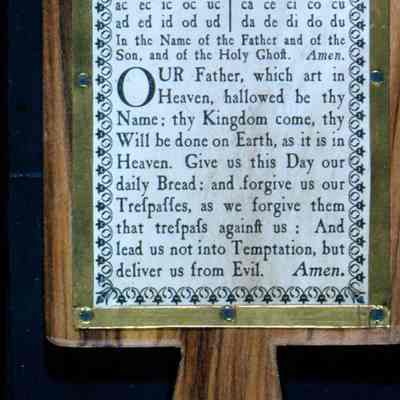 ac ec ic oc uc ca ce ci co cu
ad ed id od ud da de di do du
In the Name of the Father and of the
Son, and of the Holy Ghoſt. Amen.
OUR Father, which art in
Heaven, hallowed be thy
Name; thy Kingdom come, thy
Will be done on Earth, as it is in
Heaven. Give us this Day our
daily Bread; and forgive us our
Treſpaſſes, as we forgive them
that treſpaſs againſt us: And
lead us not into Temptation, but
deliver us from Evil. Amen.